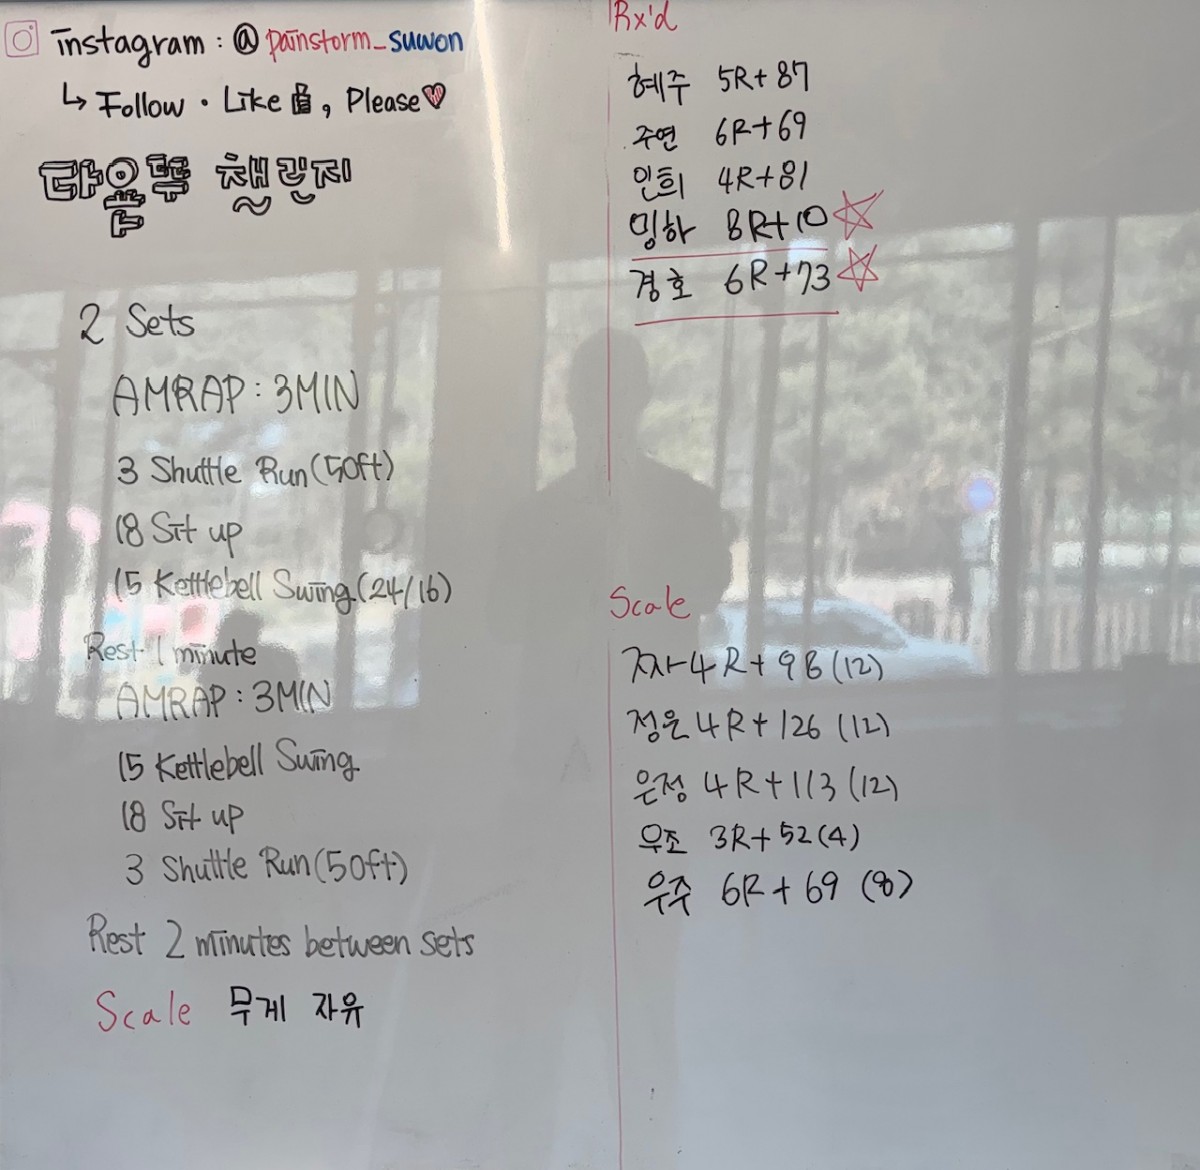 instagram : @painstorm_suwon
↳ Follow · Like 👍, Please♥
다음뿌 챌린지
2 Sets
AMRAP : 3MIN
3 Shuttle Run (50ft)
18 Sit up
15 Kettlebell Swing (24/16)
Rest 1 minute
AMRAP : 3MIN
15 Kettlebell Swing
18 Sit up
3 Shuttle Run (50ft)
Rest 2 minutes between sets
Scale 무게 자유
Rx'd
혜주 5R+87
주연 6R+69
인희 4R+81
밍하 8R+10
경호 6R+73
Scale
지사 4R+96 (12)
정은 4R+126 (12)
은정 4R+113 (12)
우조 3R+52 (4)
우주 6R+69 (8)